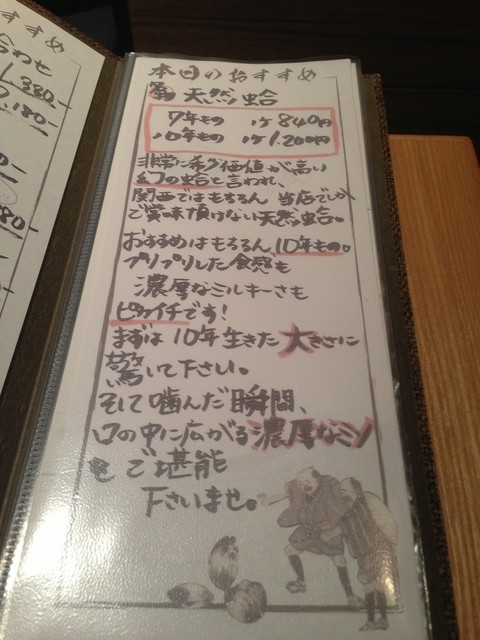 すすめ
合わせ
1,380-
2,180-
80-
本日のおすすめ
天然蛤
7年もの 1ケ840円
10年もの 1ケ1,200円
非常に希少価値が高い
幻の蛤と言われ、
関西ではもちろん 当店でしか
ご賞味頂けない天然蛤。
おすすめはもちろん、10年もの。
プリプリした食感も
濃厚なミルキーさも
ピカイチです!
まずは10年生きた大きさに
驚いて下さい。
そして噛んだ瞬間、
口の中に広がる濃厚なミソ
をご堪能
下さいませ。